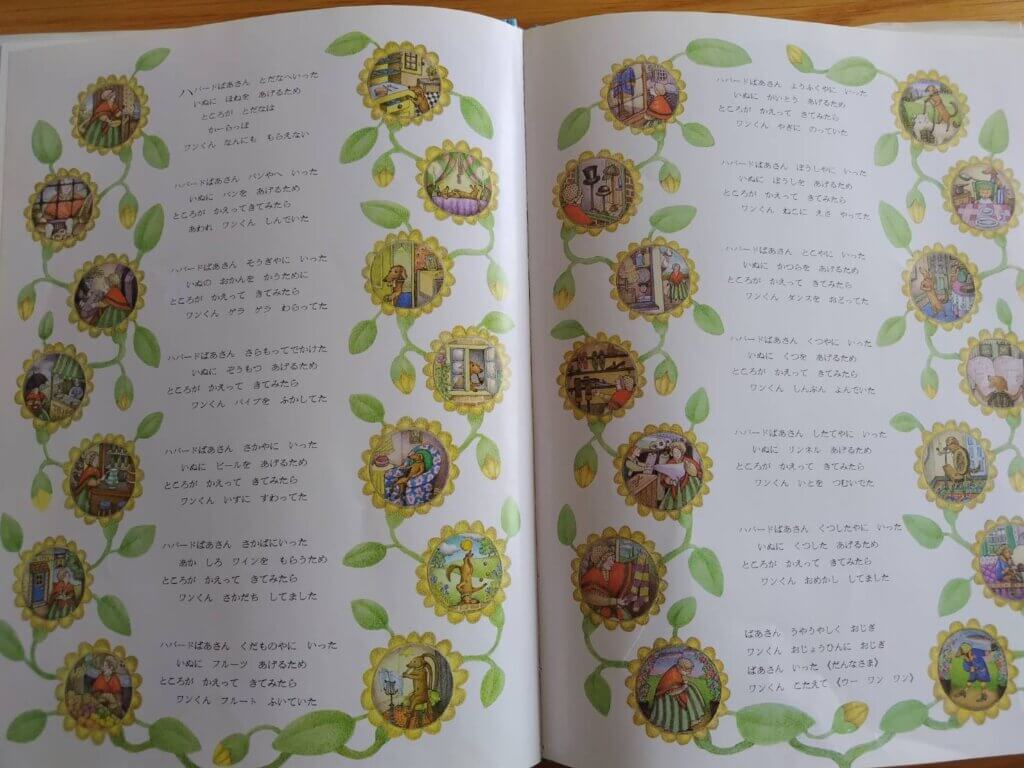 ハバードばあさん とだなへいった
いぬに ほねを あげるため
ところが とだなは
かーらっぽ
ワンくん なんにも もらえない
ハバードばあさん パンやへ いった
いぬに パンを あげるため
ところが かえってきてみたら
あわれ ワンくん しんでいた
ハバードばあさん そうぎやに いった
いぬの おかんを かうために
ところが かえって きてみたら
ワンくん ゲラ ゲラ わらってた
ハバードばあさん さらもってでかけた
いぬに ぞうもつ あげるため
ところが かえって きてみたら
ワンくん パイプを ふかしてた
ハバードばあさん さかやに いった
いぬに ビールを あげるため
ところが かえって きてみたら
ワンくん いすに すわってた
ハバードばあさん さかばにいった
あか しろ ワインを もらうため
ところが かえって きてみたら
ワンくん さかだち してました
ハバードばあさん くだものやに いった
いぬに フルーツ あげるため
ところが かえって きてみたら
ワンくん フルート ふいていた
ハバードばあさん ようふくやに いった
いぬに がいとう あげるため
ところが かえって きてみたら
ワンくん やぎに のっていた
ハバードばあさん ぼうしやに いった
いぬに ぼうしを あげるため
ところが かえって きてみたら
ワンくん ねこに えさ やってた
ハバードばあさん とこやに いった
いぬに かつらを あげるため
ところが かえって きてみたら
ワンくん ダンスを おどってた
ハバードばあさん くつやに いった
いぬに くつを あげるため
ところが かえって きてみたら
ワンくん しんぶん よんでいた
ハバードばあさん したてやに いった
いぬに リンネル あげるため
ところが かえって きてみたら
ワンくん いとを つむいでた
ハバードばあさん くつしたやに いった
いぬに くつした あげるため
ところが かえって きてみたら
ワンくん おめかし してました
ばあさん うやうやしく おじぎ
ワンくん おじょうひんに おじぎ
ばあさん いった《だんなさま》
ワンくん こたえて《ウー ワン ワン》